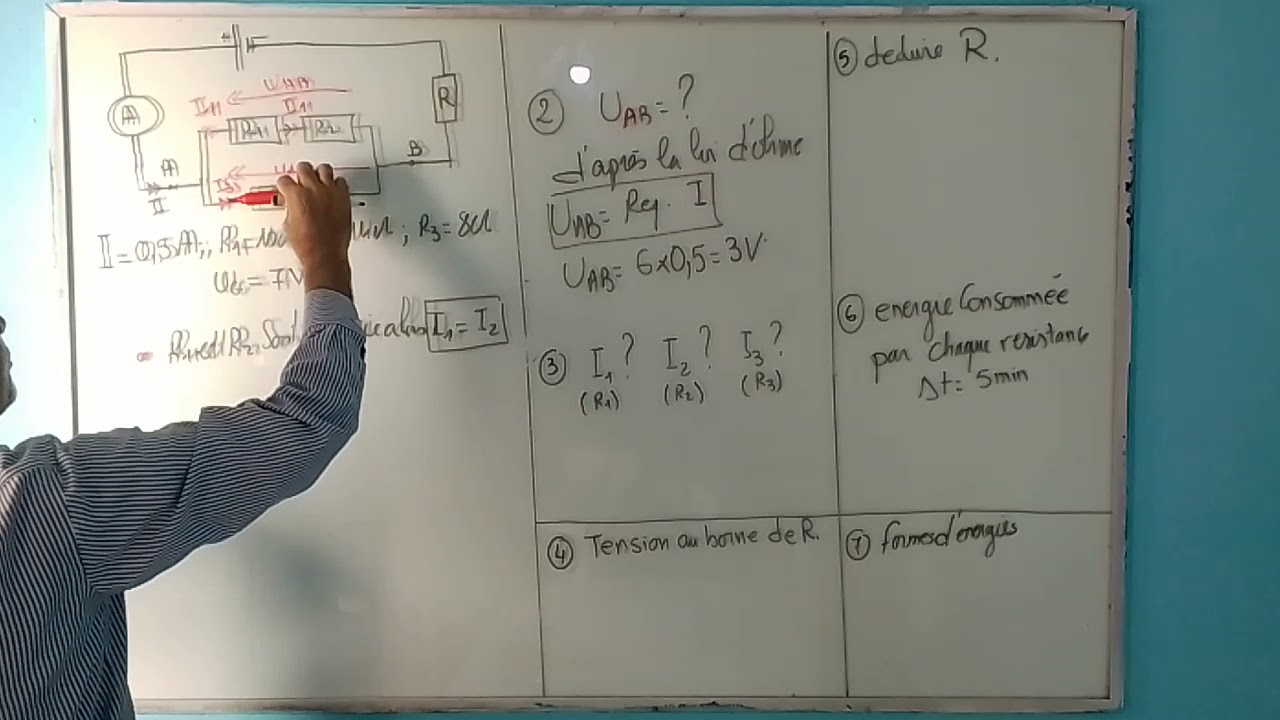 R
B
I = 0,5A ; R1 = 10Ω ; R3 = 8Ω
I1 = I2
② UAB = ?
d'après la loi d'ohme
UAB = Req . I
UAB = 6×0,5 = 3V
③ I1 ? I2 ? I3 ?
(R1) (R2) (R3)
④ Tension au borne de R.
⑤ deduire R.
⑥ energie Consommée
par chaque resistance
Δt = 5min
⑦ formes d'énergies